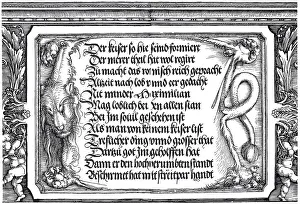 Der keiser so hie seind formiert
Der merer theil hat wol regirt
Zu macht das romisch reich gepracht
Alzeit nach lob vnnd er gedacht
Nit minder Maximilian
Mag loblich bei Jn allen stan
Bei Jm souil gesehen ist
Als man von keinem keiser list
Treflicher ding vnnd grosser that
Dartzu got Jm geholffen hat
Dann er den hochuerumbten standt
Beschirmet hat mit streitpar handt